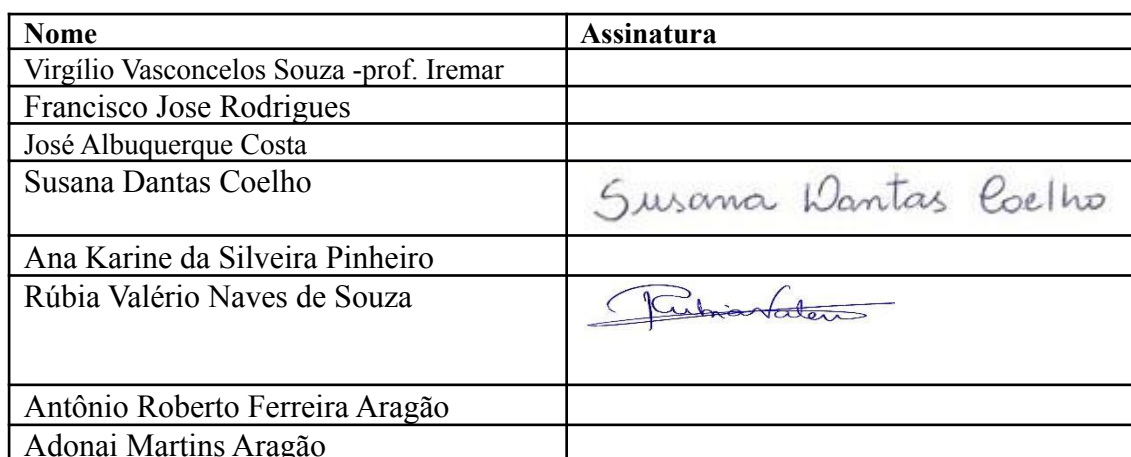 Nome Assinatura
Virgílio Vasconcelos Souza -prof. Iremar
Francisco Jose Rodrigues
José Albuquerque Costa
Susana Dantas Coelho Susana Dantas Coelho
Ana Karine da Silveira Pinheiro
Rúbia Valério Naves de Souza
Antônio Roberto Ferreira Aragão
Adonai Martins Aragão